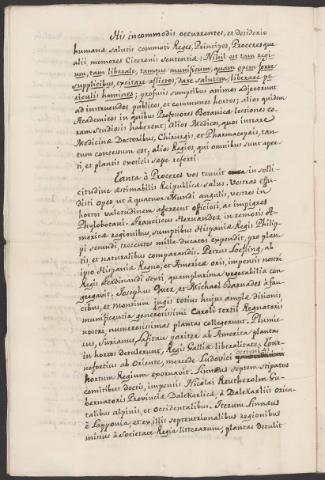 His incommodis occurrentes, et desiderio
humanæ salutis commoti Reges, Principes, Proceresque
alii, memores Ciceronis sententiæ: Nihil est tam regi-
um, tam liberale, tamque munificum, quam opem ferre
supplicibus, excitare afflictos, dare salutem, liberare pe-
riculis homines; profusis sumptibus animos adjecerunt
ad instruendos publicos, et communes hortos; alios quidem
Academicos in quibus Professores Botanicæ lectiones co-
ram studiosis haberent; alios Medicos, quos intrare
Medicinæ Doctoribus, Chirurgis, et Pharmacopæis, tan-
tum concessum est, alios Regios qui omnibus sunt aper-
ti, et plantis exoticis sæpe referti.
Tanta ô Proceres vos tenuit in solli-
citudine æstimabilis Reipublicæ salus. Vestros effu-
disti opes ut à quatuor Mundi angulis, vestros in
hortos valetudinem afferrent officiosi, ac impigri
Phylobotani. Franciscus Hernandez in remotis A-
mericæ regionibus, sumptibus Hispaniæ Regis Philip-
pi secundi, trecentos mille ducatos expendit, pro plan-
tis, et naturalibus comparandis. Petrus Loefling, ab
ipso Hispaniæ Regno, et America oris, impensis nostri
Regis Ferdinandi sexti quamplurima vegetabilia con-
gregavit. Josephus Quer, et Michael Barnades à fau-
cibus, et montium jugis totius hujus amplæ ditionis,
munificentia generosissimi Caroli tertii Regnatoris
nostri, numerosissimas plantas collegerunt. Plumie-
rus, Surianus, Lafitau pariter ab America plantas
in hortos detulerunt, Regis Galliæ liberalitate. Tour-
nefortius ab Oriente, mercede Ludovici
hortum Regium exornavit. Linnæus septem stipatus
comitibus doctis, impensis Nicolai Reuterholm Gu-
bernatoris Provinciæ Dalekarlicæ, à Dalekarliis orien-
talibus alpinis, et Occidentalibus. Iterum Linnæus
è Lapponia, et ex illis septentrionalibus regionibus
missus à Societate Regia litterarum, plantas detulit